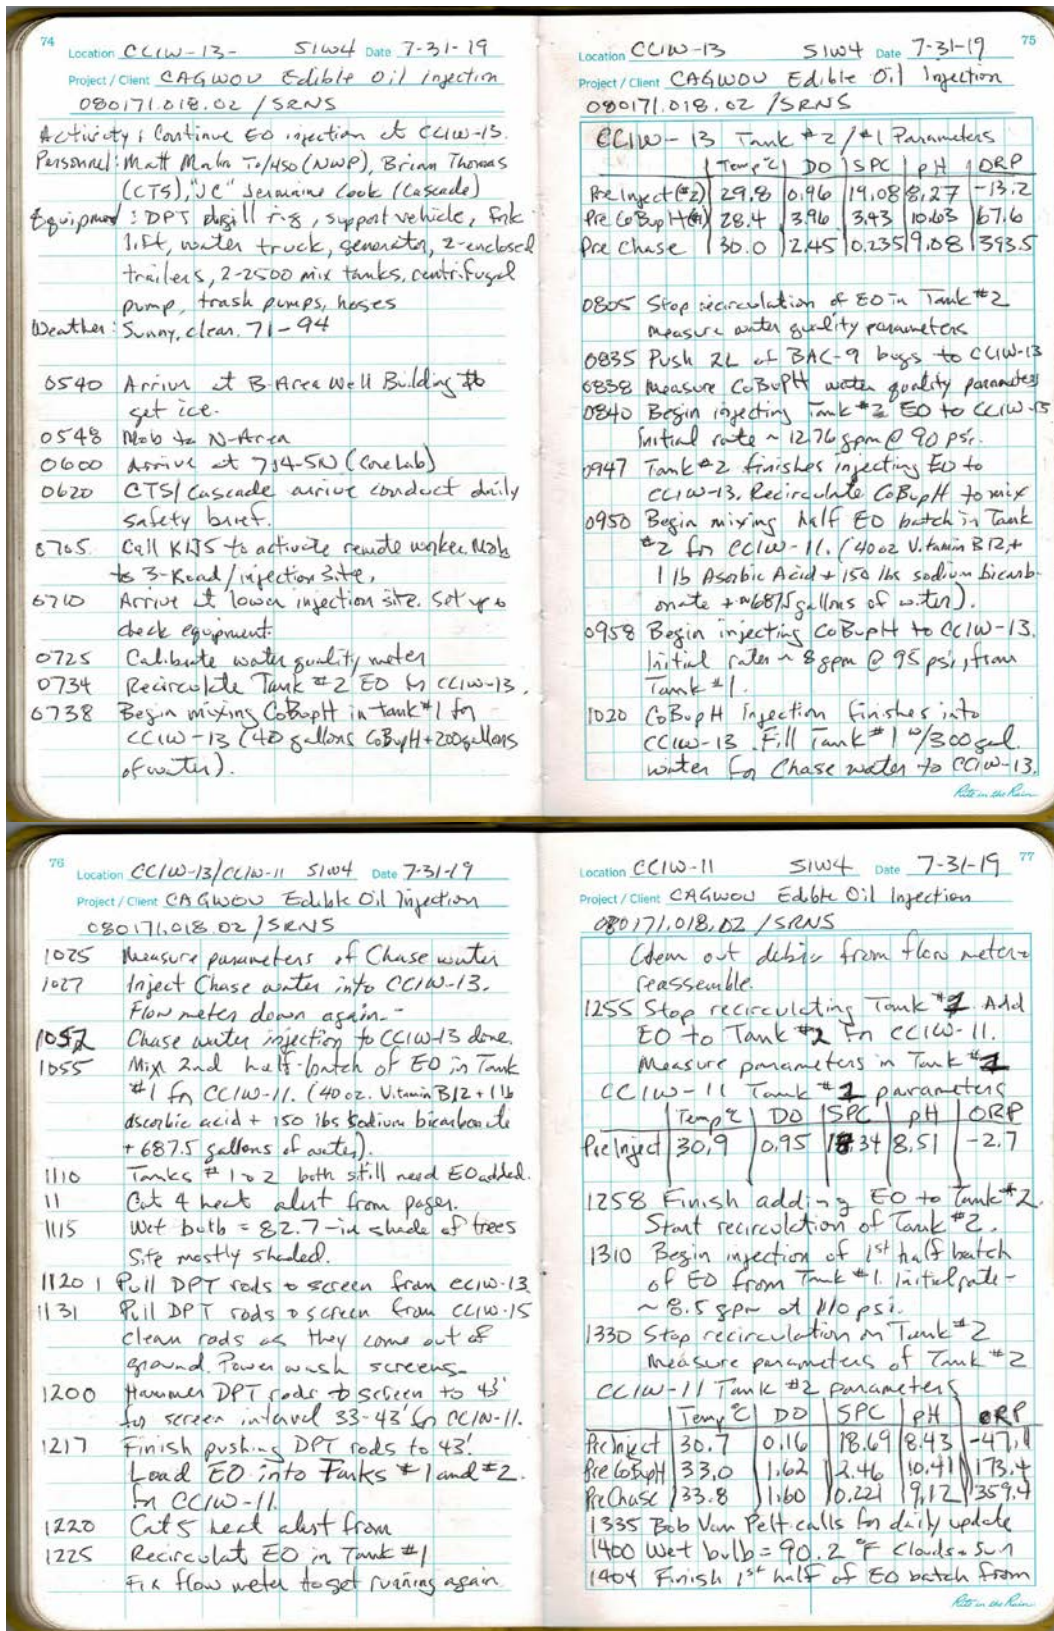 74
Location CCIW-13- SIW4 Date 7-31-19
Project / Client CAGWOU Edible Oil injection
080171.018.02 / SRNS
Activity: Continue EO injection at CCIW-13.
Personnel: Matt Malin To/450 (NWP), Brian Thomas
(CTS), "JC" Jermaine Cook (Cascade)
Equipment: DPT drill rig, support vehicle, fork
lift, water truck, generator, 2-enclosed
trailers, 2-2500 mix tanks, centrifugal
pump, trash pumps, hoses
Weather: Sunny, clear. 71-94
0540 Arrive at B-Area Well Building to
get ice.
0548 Mob to N-Area
0600 Arrive at 714-5N (Core Lab)
0620 CTS/Cascade arrive conduct daily
safety brief.
0705 Call to activate remote worker. Mob
to 3-Road/injection site.
0710 Arrive at lower injection site. Set up &
check equipment.
0725 Calibrate water quality meter
0734 Recirculate Tank #2 EO for CCIW-13.
0738 Begin mixing CoBupH in tank #1 for
CCIW-13 (40 gallons CoBupH + 200 gallons
of water).
75
Location CCIW-13 SIW4 Date 7-31-19
Project / Client CAGWOU Edible Oil Injection
080171.018.02 / SRNS
CCIW-13 Tank #2/#1 Parameters
Temp°C DO SPC pH ORP
Pre Inject (#2) 29.8 0.96 19.08 8.27 -13.2
Pre CoBupH (#1) 28.4 3.96 3.43 10.63 67.6
Pre Chase 30.0 2.45 0.235 9.08 393.5
0805 Stop recirculation of EO in Tank #2
measure water quality parameters
0835 Push 2L of BAC-9 bugs to CCIW-13
0838 Measure CoBupH water quality parameters
0840 Begin injecting Tank #2 EO to CCIW-13
Initial rate ~ 12.76 gpm @ 90 psi.
0947 Tank #2 finishes injecting EO to
CCIW-13. Recirculate CoBupH to mix
0950 Begin mixing half EO batch in Tank
#2 for CCIW-11. (40 oz Vitamin B12 +
1 lb Asorbic Acid + 150 lbs sodium bicarb-
onate + ~687.5 gallons of water).
0958 Begin injecting CoBupH to CCIW-13.
Initial rate ~ 8 gpm @ 95 psi, from
Tank #1.
1020 CoBupH Injection finishes into
CCIW-13. Fill Tank #1 w/300 gal.
water for Chase water to CCIW-13.
Rite in the Rain
76
Location CCIW-13/CCIW-11 SIW4 Date 7-31-19
Project / Client CAGWOU Edible Oil Injection
080171.018.02 / SRNS
1025 Measure parameters of Chase water
1027 Inject Chase water into CCIW-13.
Flow meter down again.-
1052 Chase water injection to CCIW-13 done.
1055 Mix 2nd half-batch of EO in Tank
#1 for CCIW-11. (40 oz. Vitamin B12 + 1 lb
ascorbic acid + 150 lbs sodium bicarbonate
+ 687.5 gallons of water).
1110 Tanks #1 & 2 both still need EO added.
11 Cat 4 heat alert from pager.
1115 Wet bulb = 82.7 - in shade of trees
Site mostly shaded.
1120 Pull DPT rods & screen from CCIW-13
1131 Pull DPT rods & screen from CCIW-15
clean rods as they come out of
ground. Power wash screens-
1200 Hammer DPT rods & screen to 43'
for screen interval 33-43' for CCIW-11.
1217 Finish pushing DPT rods to 43'.
Load EO into Tanks #1 and #2.
for CCIW-11.
1220 Cat 5 heat alert from
1225 Recirculat EO in Tank #1
Fix flow meter to get running again.
77
Location CCIW-11 SIW4 Date 7-31-19
Project / Client CAGWOU Edible Oil Injection
080171.018.02 / SRNS
Clean out debris from flow meter &
reassemble.
1255 Stop recirculating Tank #1. Add
EO to Tank #2 for CCIW-11.
Measure parameters in Tank #1
CCIW-11 Tank #1 parameters
Temp°C DO SPC pH ORP
Pre Inject 30.9 0.95 18.34 8.51 -2.7
1258 Finish adding EO to Tank #2.
Start recirculation of Tank #2.
1310 Begin injection of 1st half batch
of EO from Tank #1. Initial rate -
~ 8.5 gpm at 110 psi.
1330 Stop recirculation in Tank #2
measure parameters of Tank #2
CCIW-11 Tank #2 parameters
Temp°C DO SPC pH ORP
Pre Inject 30.7 0.16 18.69 8.43 -47.1
Pre CoBupH 33.0 1.62 2.46 10.41 173.4
Pre Chase 33.8 1.60 0.221 9.12 359.4
1335 Bob Van Pelt calls for daily update
1400 Wet bulb = 90.2 °F Clouds & Sun
1404 Finish 1st half of EO batch from
Rite in the Rain